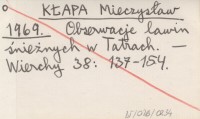 KŁAPA Mieczysław
1969. Obserwacje lawin
śnieżnych w Tatrach. —
Wierchy 38: 137-154.